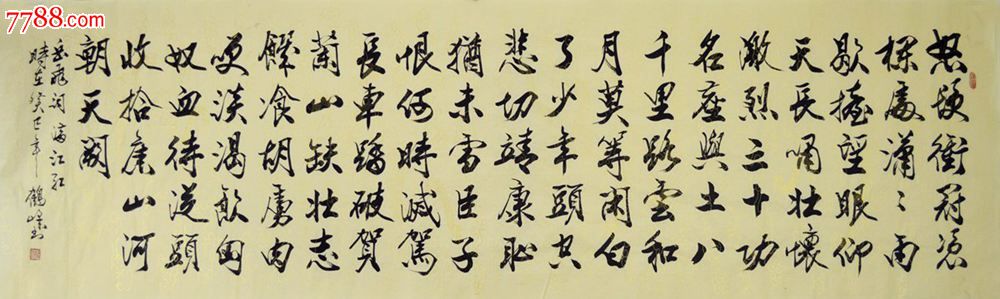 7788.com
怒髮衝冠憑
欄處瀟々雨
歇擡望眼仰
天長嘯壯懷
激烈三十功
名塵與土八
千里路雲和
月莫等閑白
了少年頭空
悲切靖康恥
猶未雪臣子
恨何時滅駕
長車踏破賀
蘭山缺壯志
饑飡胡虜肉
笑談渴飲匈
奴血待從頭
收拾舊山河
朝天闕
岳飛詞滿江紅
時在癸巳年 鶴峰書